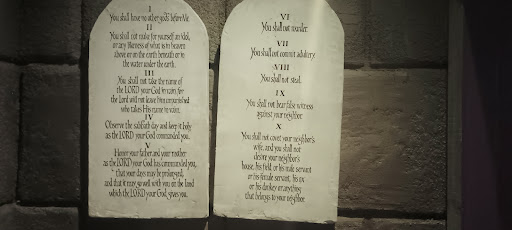 I
You shall have no other gods before Me.
II
You shall not make for yourself an idol,
or any likeness of what is in heaven
above or on the earth beneath or in
the water under the earth.
III
You shall not take the name of
the LORD your God in vain, for
the Lord will not leave him unpunished
who takes His name in vain.
IV
Observe the sabbath day and keep it holy
as the LORD your God commanded you.
V
Honor your father and your mother
as the LORD your God has commanded you,
that your days may be prolonged,
and that it may go well with you on the land
which the LORD your God gives you.
VI
You shall not murder.
VII
You shall not commit adultery.
VIII
You shall not steal.
IX
You shall not bear false witness
against your neighbor.
X
You shall not covet your neighbor's
wife, and you shall not
desire your neighbor's
house, his field or his male servant
or his female servant, his ox
or his donkey or anything
that belongs to your neighbor.